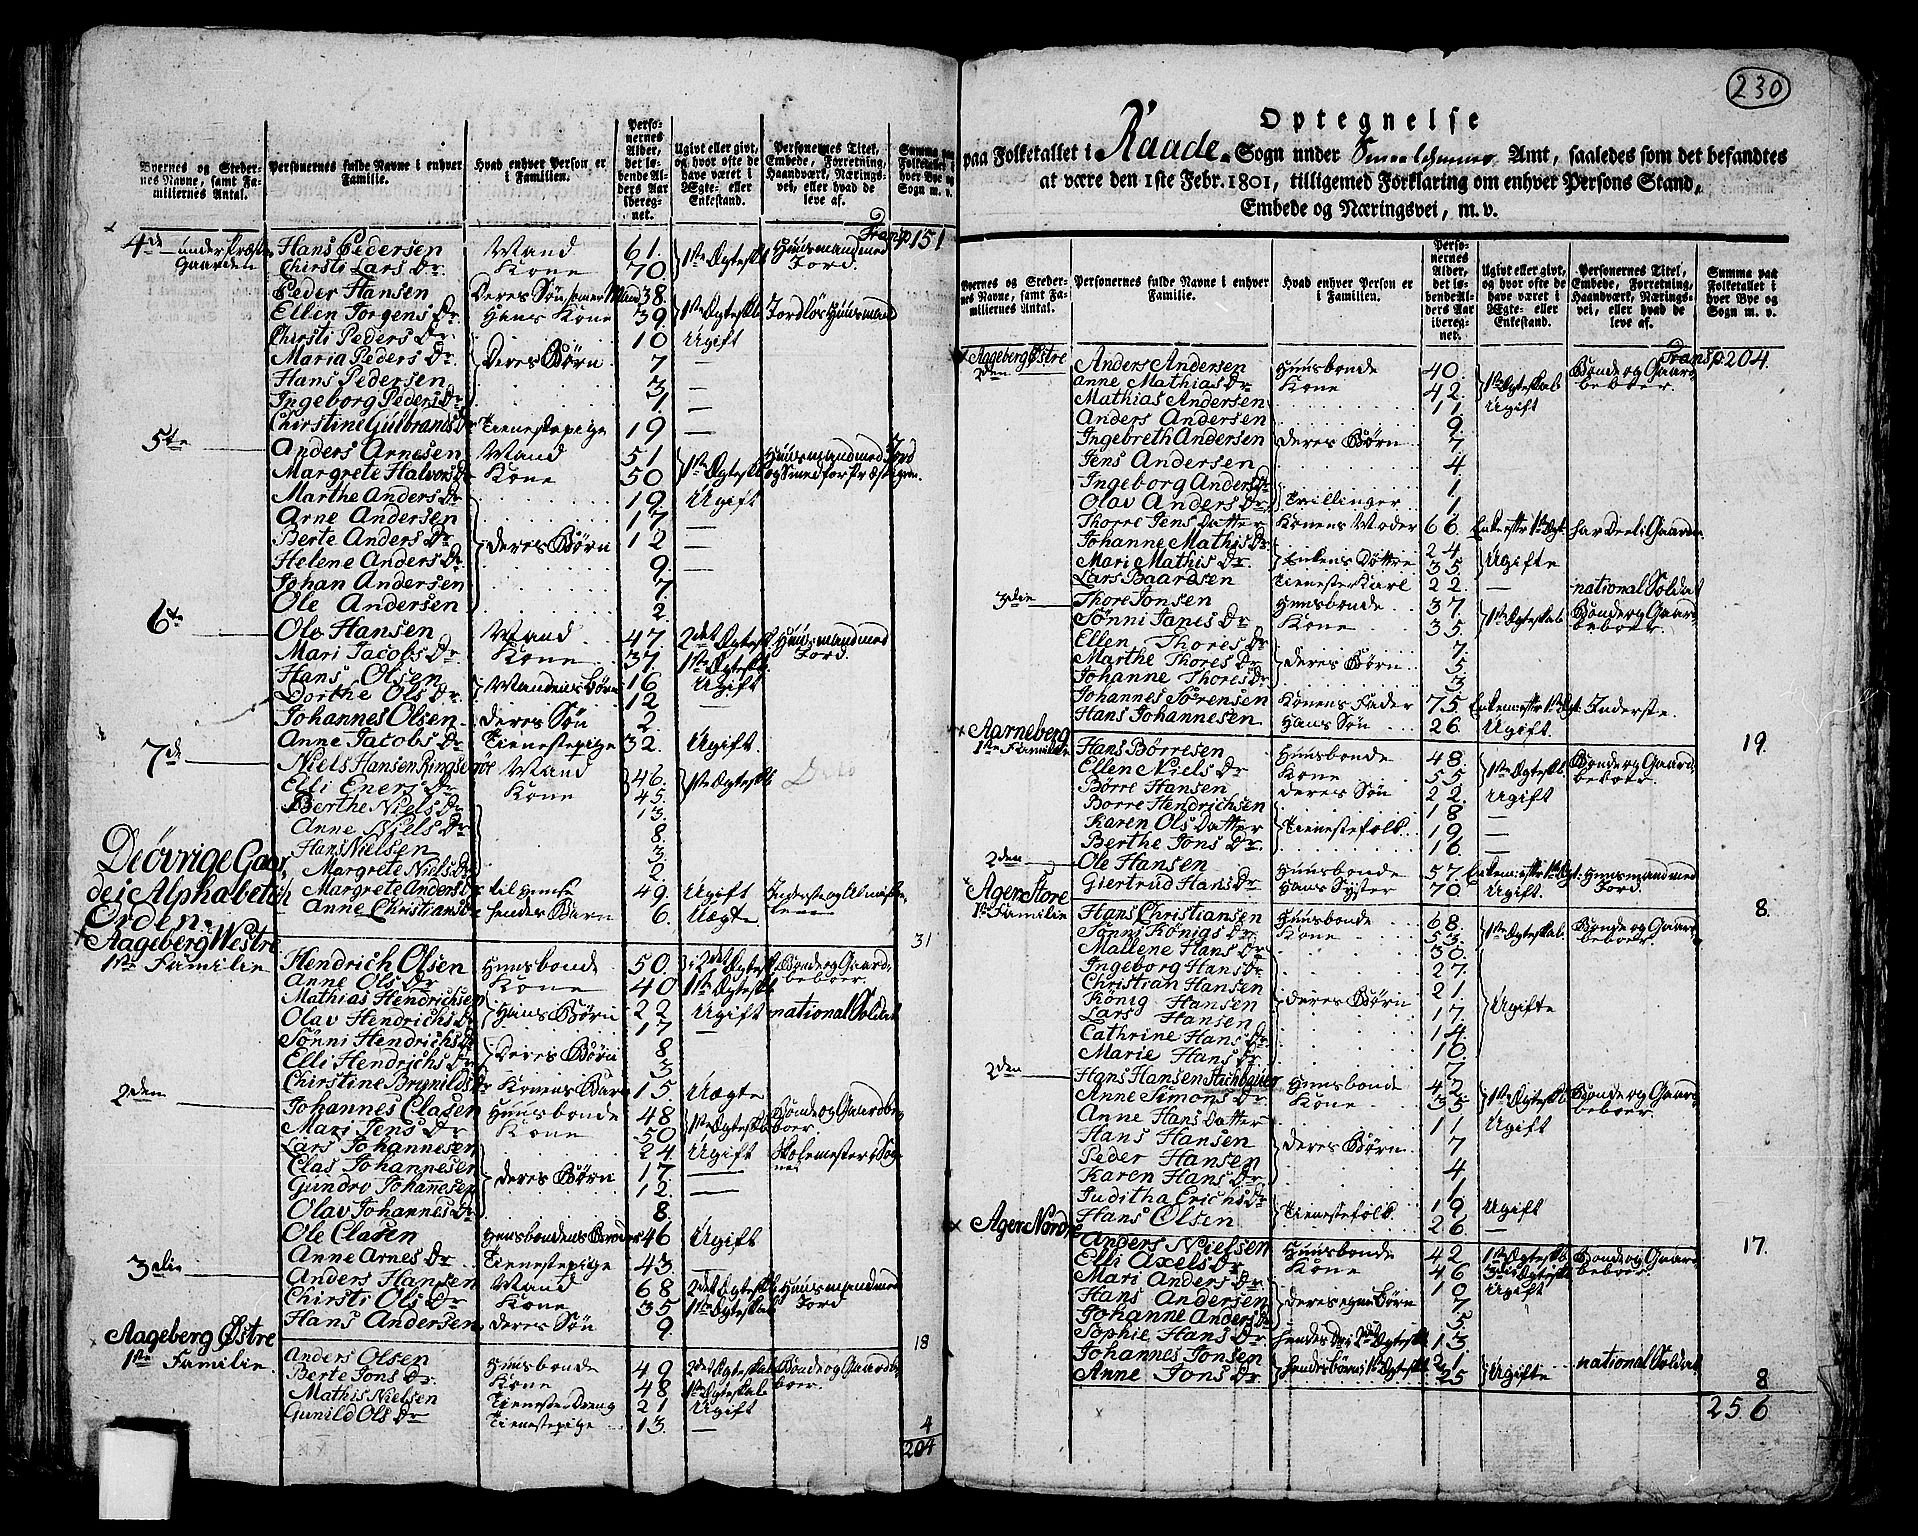 Byernes og Stedernes Navne, samt Familiernes Antal.
Personernes fulde Navne i enhver Familie.
Hvad enhver Person er i Familien.
Personernes Alder, det løbende Alders Aar iberegnet.
Ugivt eller givt, og hvor ofte de have været i Ægte- eller Enkestand.
Personernes Titel, Embede, Forretning, Haandværk, Næringsvei, eller hvad de leve af.
Summa paa Folketallet i hver Bye og Sogn m. v.
Transp 151
4de under Præste Gaarden Hans Pedersen Mand 61. 1ste Ægteskb Huusmand med Jord.
Chirsti Lars Dr. Kone 70
Peder Hansen Deres Søn som er Mand 38. 1ste Ægteskb Jordløs Huusmand
Ellen Jorgens Dr. Hans Kone 39.
Chirsti Peders Dr. 10 Ugift
Maria Peders Dr. Deres Børn 7 —
Hans Pedersen 3 —
Ingeborg Peders Dr. 1. —
Chirstine Gulbrands Dr Tienestepige 19 —
5te Anders Arnesen Mand 51 1ste Ægteskb Huusmand med Jord og Smed for Præstegien.
Margrete Halvors Dr Kone 50
Marthe Anders Dr. 19 Ugift
Arne Andersen 17 —
Berte Anders Dr. Deres Børn 12 —
Helene Anders Dr. 9. —
Johan Andersen 7
Ole Andersen 2.
6te Ole Hansen Mand 47 2det Ægteskb Huusmand med Jord.
Mari Jacobs Dr. Kone 37. 1ste Ægteskb
Hans Olsen Mandens Børn 16 Ugift
Dorthe Ols Dr. 12 —
Johannes Olsen Deres Søn 2.
Anne Jacobs Dr. Tienestepige 32. Ugift.
7de Niels Hansen Ringsegor Mand 46. 1ste Ægteskb
Elli Eners Dr. Kone 45.
Berthe Niels Dr 13.
Anne Niels Dr 8
Hans Nielsen 3.
Margrete Niels Dr 2.
Margrete Anders Dr til Huuse 49 Ugift
Anne Christians Dr hendes Barn 6. Uægte
31
De øvrige Gaarde i Alphabetisch Orden.
Aageberg Westre
1ste Familie Hendrich Olsen Huusbonde 50. 2det Ægteskb Bonde og Gaardbeboer.
Anne Ols Dr Kone 40 1ste Ægteskb
Mathias Hendrichsen Hans Børn 22 Ugift national Soldat
Olav Hendrichs Dr. 17 —
Sønni Hendrichs Dr Deres Børn 8
Elli Hendrichs Dr. 3
Chirstine Brynilds Dr Konens Barn 15 Uægte
2den Johannes Clasen Huusbonde 48 1ste Ægteskb Bonde og Gaardbeboer.
Mari Jens Dr Kone 50
Lars Johannesen 24 Ugift Skolemester i Sognet
Clas Johannesen Deres Børn 17 —
Gundro Johannesen 12. —
Olav Johannes Dr 8.
Ole Clasen Huusbondens Broder 46 Ugift
Anne Arnes Dr. Tienestepige 43. —
3die Anders Hansen Mand 68 2det Ægteskb Huusmand med Jord
Chirsti Ols Dr Kone 35 1ste Ægteskab
Hans Andersen Deres Søn 9.
18
Aageberg Østre
1ste Familie Anders Olsen Huusbonde 49 2det Ægteskab Bonde og Gaardbeboer.
Berte Jons Dr. Kone 48 1ste Ægteskab
Mathis Nielsen Tieneste Dreng 21 Ugift
Gunild Ols Dr Tienestepige 13. —
4
204
230
Optegnelse
paa Folketallet i Raade Sogn under Smaalehnenes Amt, saaledes som det befandtes
at være den 1ste Febr. 1801, tilligemed Forklaring om enhver Persons Stand,
Embede og Næringsvei, m. v.
Byernes og Stedernes Navne, samt Familiernes Antal.
Personernes fulde Navne i enhver Familie.
Hvad enhver Person er i Familien.
Personernes Alder, det løbende Alders Aar iberegnet.
Ugivt eller givt, og hvor ofte de have været i Ægte- eller Enkestand.
Personernes Titel, Embede, Forretning, Haandværk, Næringsvei, eller hvad de leve af.
Summa paa Folketallet i hver Bye og Sogn m. v.
Transp 204.
Aageberg Østre
2den Anders Andersen Huusbonde 40. 1ste Ægteskab Bonde og Gaardbeboer.
Anne Mathias Dr Kone 42.
Mathias Andersen 11 Ugift
Anders Andersen 9.
Ingebreth Andersen Deres Børn 7
Jens Andersen 4
Ingeborg Anders Dr 1
Olav Anders Dr Tvillinger 1
Thorre Jens Datter Konens Moder 66.
Johanne Mathis Dr 24. Ugifte
Mari Mathis Dr. Enkens Døttre 35
Lars Baardsen Tieneste Karl 22. — national Soldat
3die Thore Jonsen Huusbonde 37. 1ste Ægteskab Bonde og Gaardbeboer.
Sønni Janes Dr Kone 35.
Ellen Thores Dr 7.
Marthe Thores Dr Deres Børn 5
Johanne Thores Dr 3
Johannes Sørensen Konens Fader 75 Inderste.
Hans Johannesen Hans Søn 26 Ugift.
19.
Aarneberg
1ste Familie Hans Børresen Huusbonde 48. 1ste Ægteskb. Bonde og Gaardbeboer
Ellen Niels Dr Kone 55
Børre Hansen Deres Søn 22. Ugift
Borre Hendrichsen 18 —
Karen Ols Datter Tienestefolk 19 —
Berthe Jons Dr. 16. —
2den Ole Hansen Huusbonde 57. Huusmand med Jord.
Giertrud Hans Dr Hans Syster 70. Ugift.
8.
Ager Store
1ste Familie Hans Christiansen Huusbonde 68. 1ste Ægteskab. Bonde og Gaardbeboer.
Sønni Königs Dr. Kone 53.
Mallene Hans Dr 30.
Ingeborg Hans Dr 27.
Christian Hansen 21
König Hansen Deres Børn 17. Ugifte
Lars Hansen
Cathrine Hans Dr 14
Marie Hans Dr 10.
7
2den Hans Hansen Huusbonde 42 1ste Ægteskb Bonde og Gaardbeboer.
Anne Simons Dr Kone 35
Anne Hans Datter 11 Ugift
Hans Hansen Deres Børn 7
Peder Hansen 4
Karen Hans Dr 1
Juditha Erichs Dr Tienestefolk 19 Ugift
Hans Olsen 26. —
17.
Ager Nordre Anders Nielsen Huusbonde 42 1ste Ægteskb Bonde og Gaardbeboer.
Elli Axels Dr Kone 46 3die Ægteskb
Mari Anders Dr 10 Ugift
Hans Andersen Deres egne Børn 7
Johanne Anders Dr 5
Sophie Hans Dr. 13
Johannes Jonsen 21. Ugifte national Soldat
Anne Jons Dr. 25
8
256